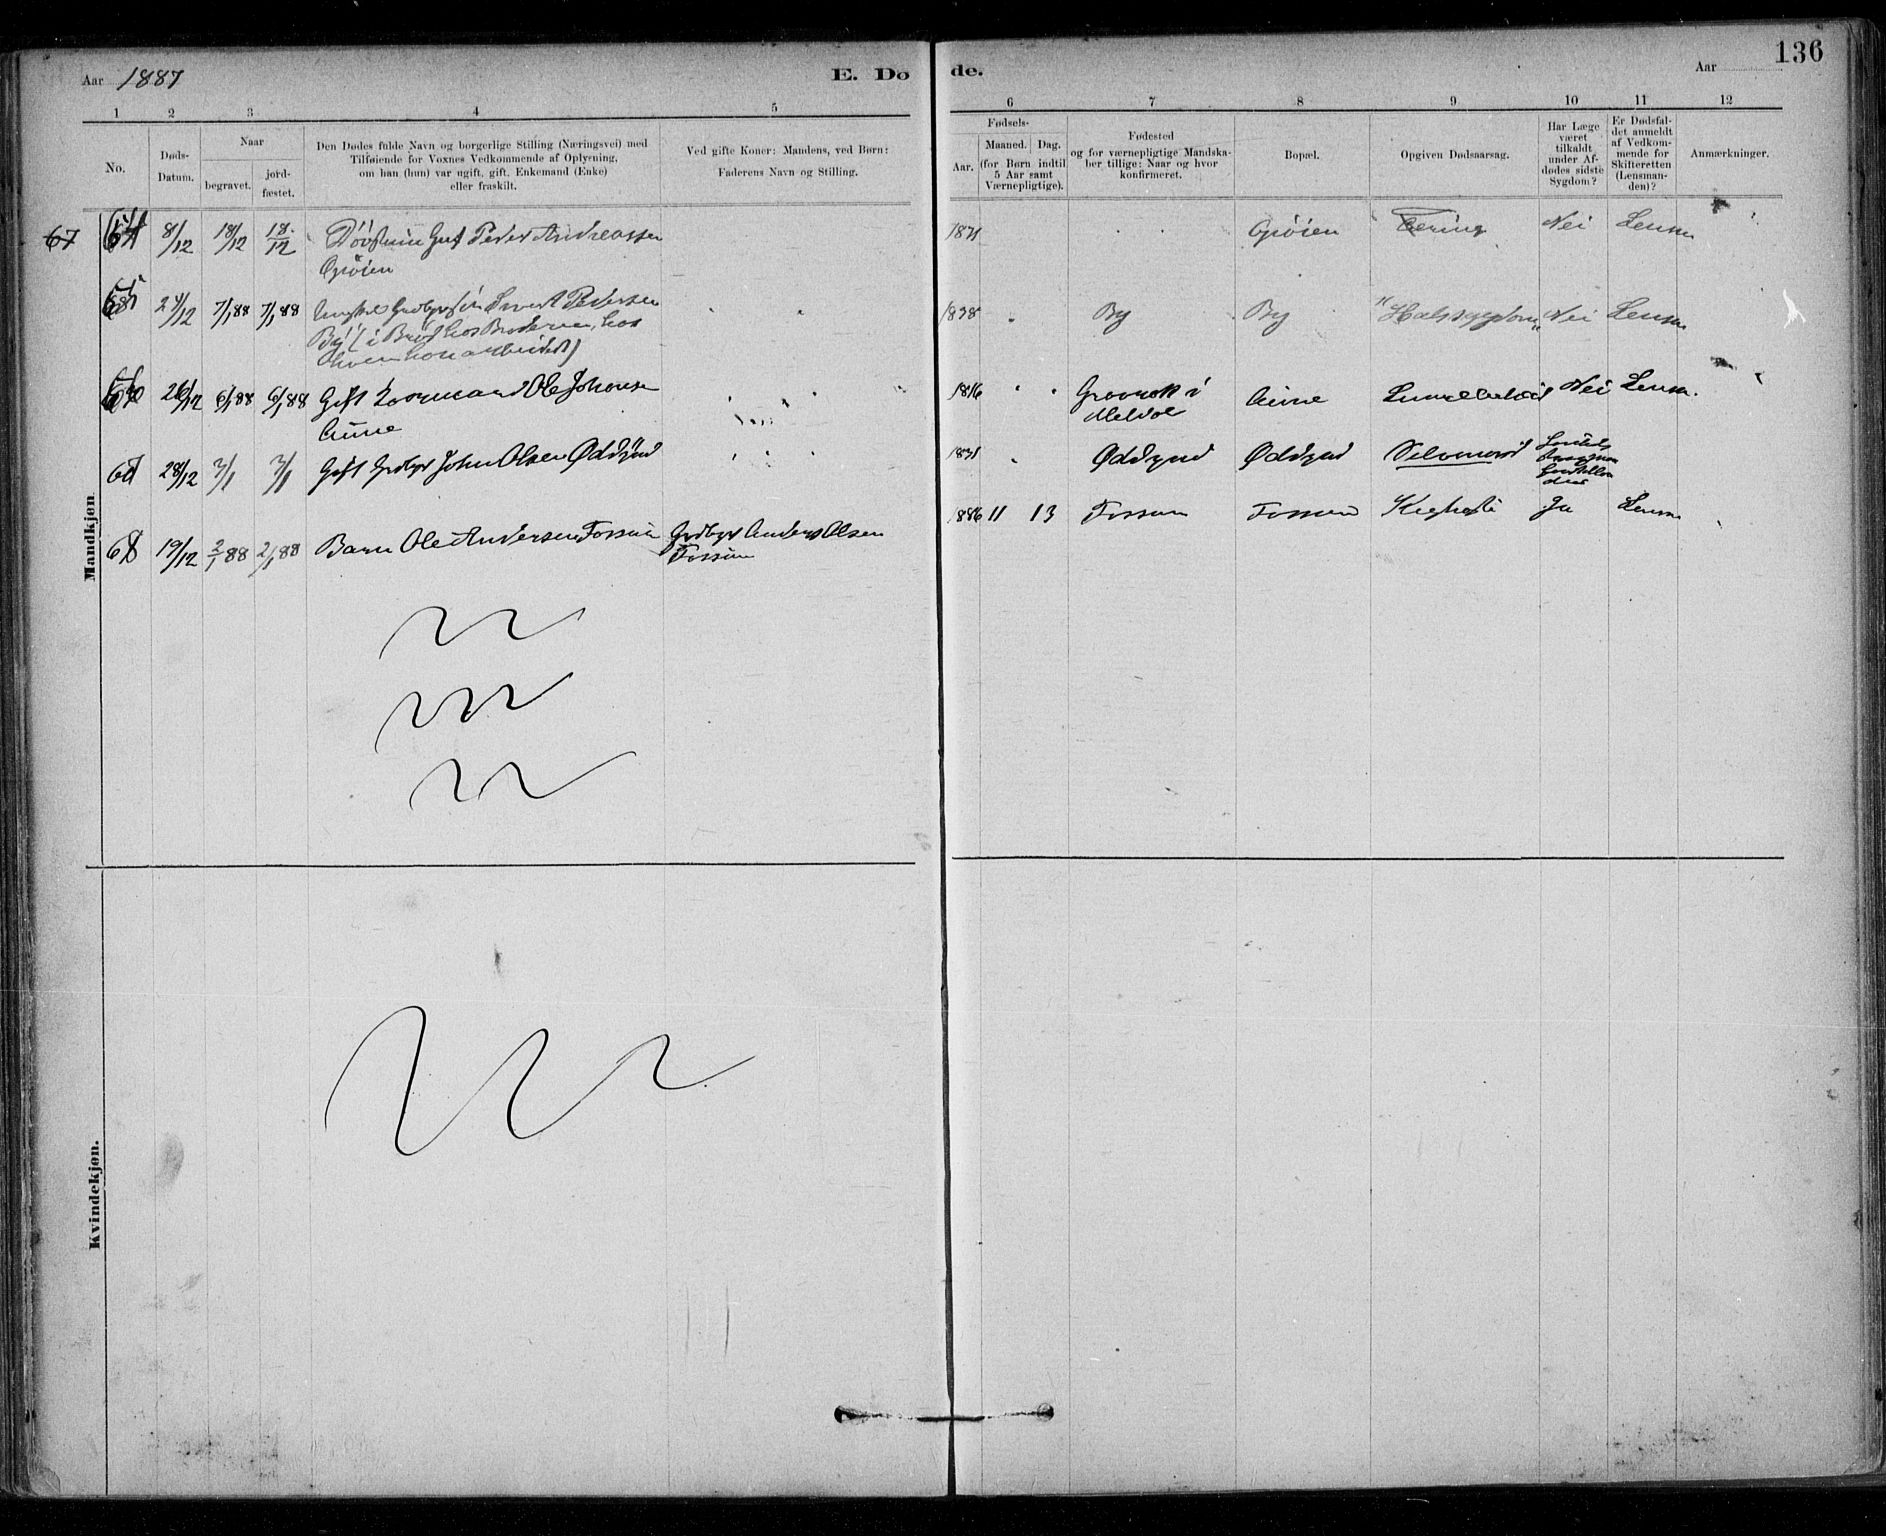 136
Aar 1887
E. Dø
de.
Aar
1 2 3 4 5
6 7 8 9 10 11 12
No.
Døds-
Datum.
Naar
begravet.
jord-
fæstet.
Den Dødes fulde Navn og borgerlige Stilling (Næringsvei) med
Tilføiende for Voxnes Vedkommende af Oplysning,
om han (hun) var ugift, gift, Enkemand (Enke)
eller fraskilt.
Ved gifte Koner: Mandens, ved Børn:
Faderens Navn og Stilling.
Fødsels-
Aar.
Maaned.
Dag.
(for Børn indtil
5 Aar samt
Værnepligtige).
Fødested
og for værnepligtige Mandska-
ber tillige: Naar og hvor
konfirmeret.
Bopæl.
Opgiven Dødsaarsag.
Har Læge
været
tilkaldt
under Af-
dødes sidste
Sygdom?
Er Dødsfal-
det anmeldt
af Vedkom-
mende for
Skifteretten
(Lensman-
den)?
Anmærkninger.
Mandkjøn
67
8/12 18/12 18/12 Peder Andreassen
Grøien
Grøien Tæring Nei Lensm
24/12 7/1 88 7/1 88 Pedersen
By (i Brød hos Broderen, hos
hvem han arbeidet)
1838 By By "Halssygdom" Nei Lensm
26/12 6/1 88 6/1 88 Gift Ole Johnsen
Aune
1816 i
Meldal
Aune Nei Lensm.
28/12 3/1 3/1 Gift Grdbgr John Olsen Øddgrd
Øddgrd Øddgrd Selvmord
19/12 2/1 88 2/1 88 Barn Ole Andersen Fossum Grdbgr Anders Olsen
Fossum
1886 11 13 Fossum Fossum Kighoste Ja Lensm
Kvindekjøn.